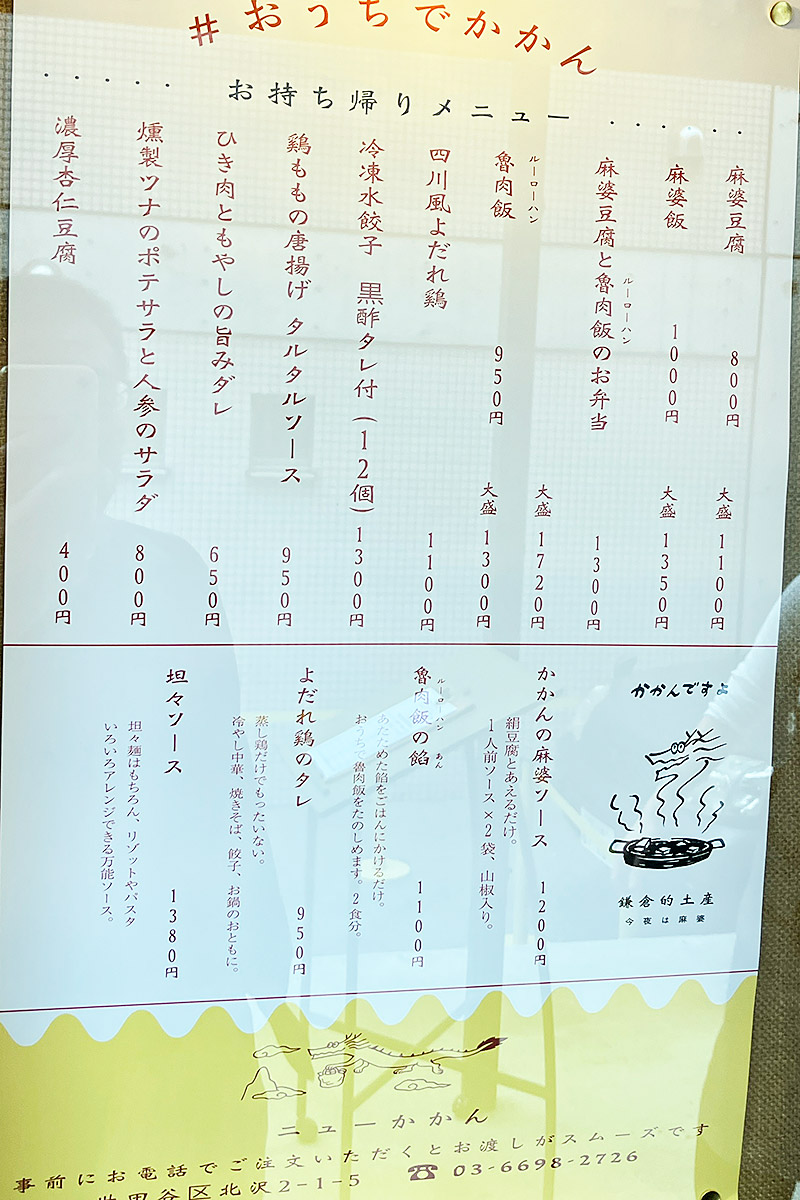 #おうちでかかん
お持ち帰りメニュー
麻婆豆腐 800円 大盛 1100円
麻婆飯 1000円 大盛 1350円
麻婆豆腐と魯肉飯のお弁当 1300円
ルーローハン
大盛 1720円
魯肉飯 950円 大盛 1300円
ルーローハン
四川風よだれ鶏 1100円
冷凍水餃子 黒酢タレ付(12個) 1300円
鶏ももの唐揚げ タルタルソース 950円
ひき肉ともやしの旨みダレ 650円
燻製ツナのポテサラと人参のサラダ 800円
濃厚杏仁豆腐 400円
かかんですよ
鎌倉的土産
今夜は麻婆
かかんの麻婆ソース 1200円
絹豆腐とあえるだけ。
1人前ソース×2袋、山椒入り。
魯肉飯の餡 1100円
ルーローハン あん
あたためた餡をごはんにかけるだけ。
おうちで魯肉飯をたのしめます。2食分。
よだれ鶏のタレ 950円
蒸し鶏だけでもったいない。
冷やし中華、焼きそば、餃子、お鍋のおともに。
坦々ソース 1380円
坦々麺はもちろん、リゾットやパスタ
いろいろアレンジできる万能ソース。
ニューかかん
事前にお電話でご注文いただくとお渡しがスムーズです
世田谷区北沢2-1-5 ☎ 03-6698-2726